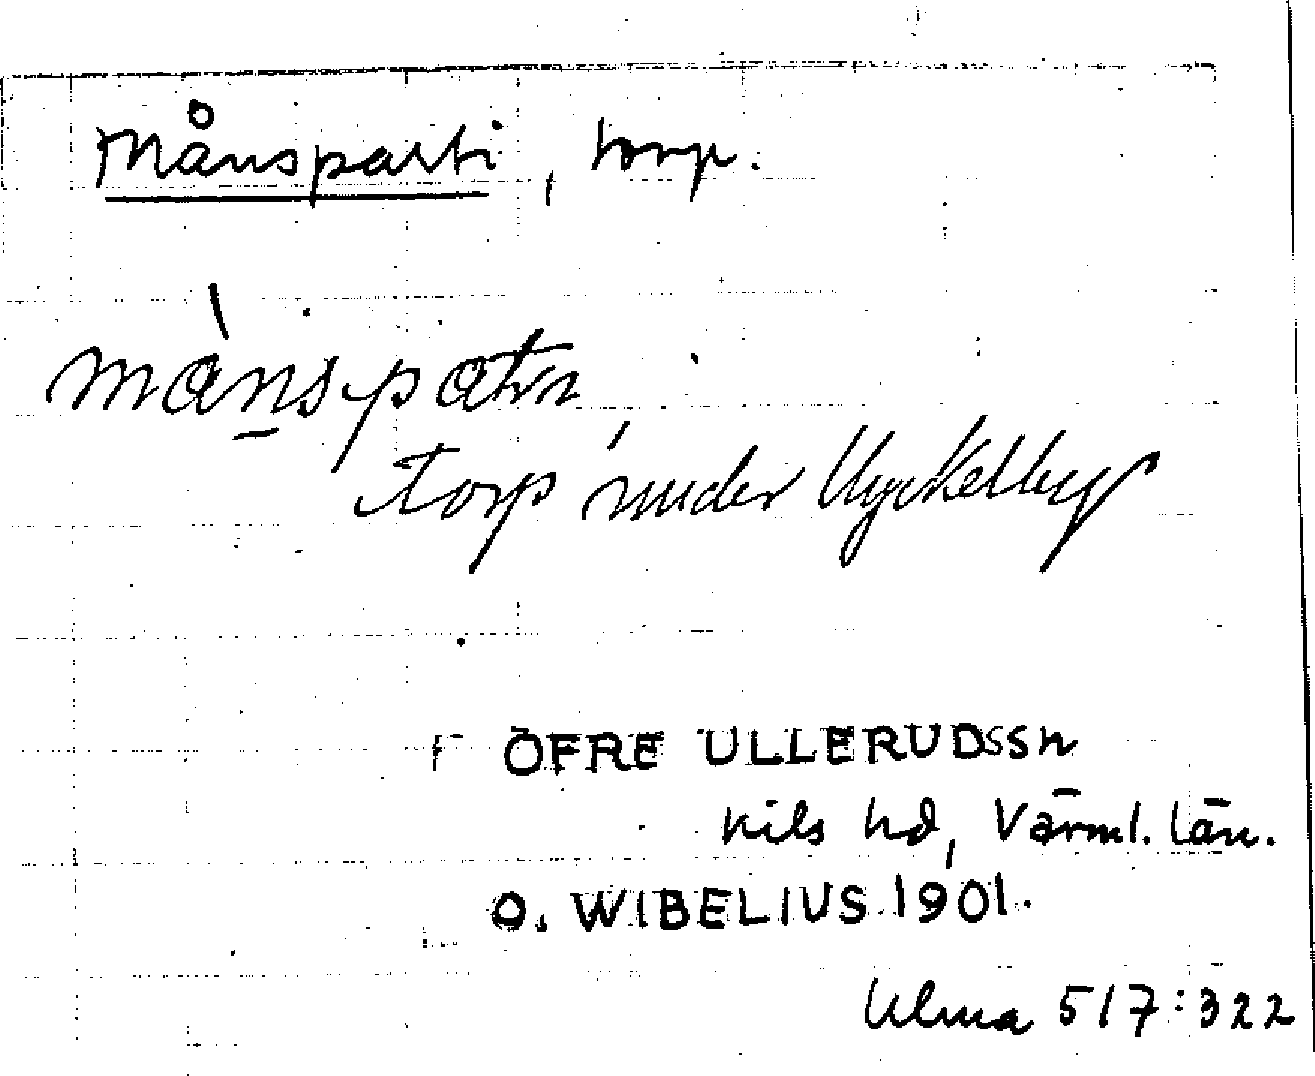 Månsparti, torp.
torp under Nyckelby
ÖFRE ULLERUDSSN
Kils hd, Värml. län.
O. WIBELIUS 1901.
Ulma 517:322